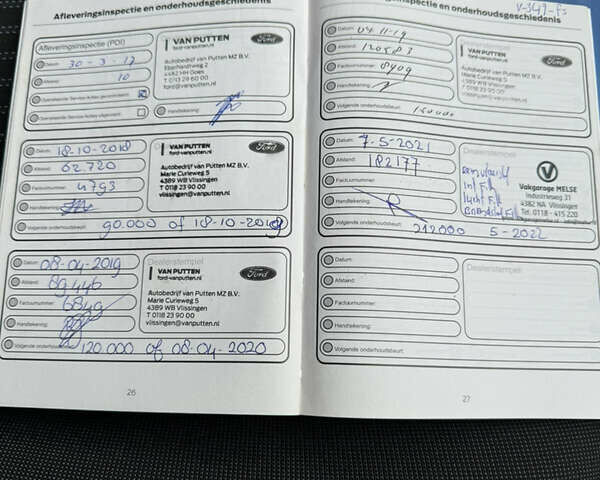 Afleveringsinspectie en onderhoudsgeschiedenis
Afleveringsinspectie (PDI)
Datum: 30-3-17
Afstand: 10
Handtekening:
VAN PUTTEN
ford-vanputten.nl
Ford
Autobedrijf van Putten MZ B.V.
4462 HH Goes
ford@vanputten.nl
Datum: 18-10-2018
Afstand: 62.720
Factuurnummer: 4793
Handtekening:
Volgende onderhoudsbeurt: 90.000 of 18-10-2019
VAN PUTTEN
ford-vanputten.nl
Ford
Autobedrijf van Putten MZ B.V.
Marie Curieweg 5
4389 WB Vlissingen
T 0118 23 90 00
vlissingen@vanputten.nl
Datum: 08-04-2019
Afstand: 89446
Factuurnummer: 6849
Handtekening:
Volgende onderhoudsbeurt: 120.000 of 08-04-2020
Dealerstempel
VAN PUTTEN
ford-vanputten.nl
Ford
Autobedrijf van Putten MZ B.V.
Marie Curieweg 5
4389 WB Vlissingen
T 0118 23 90 00
vlissingen@vanputten.nl
26
inspectie en onderhoudsgeschiedenis
Datum: 04-11-19
Afstand: 120583
Factuurnummer: 8409
Handtekening:
Volgende onderhoudsbeurt: 150000
VAN PUTTEN
Ford
Datum: 7-5-2021
Afstand: 182177
Factuurnummer:
Handtekening:
Volgende onderhoudsbeurt: 212000 5-2022
Dealerstempel
Vakgarage MELSE
Industrieweg 31
4382 NA Vlissingen
Tel. 0118 - 415 220
Datum:
Afstand:
Factuurnummer:
Handtekening:
Volgende onderhoudsbeurt:
Dealerstempel
27